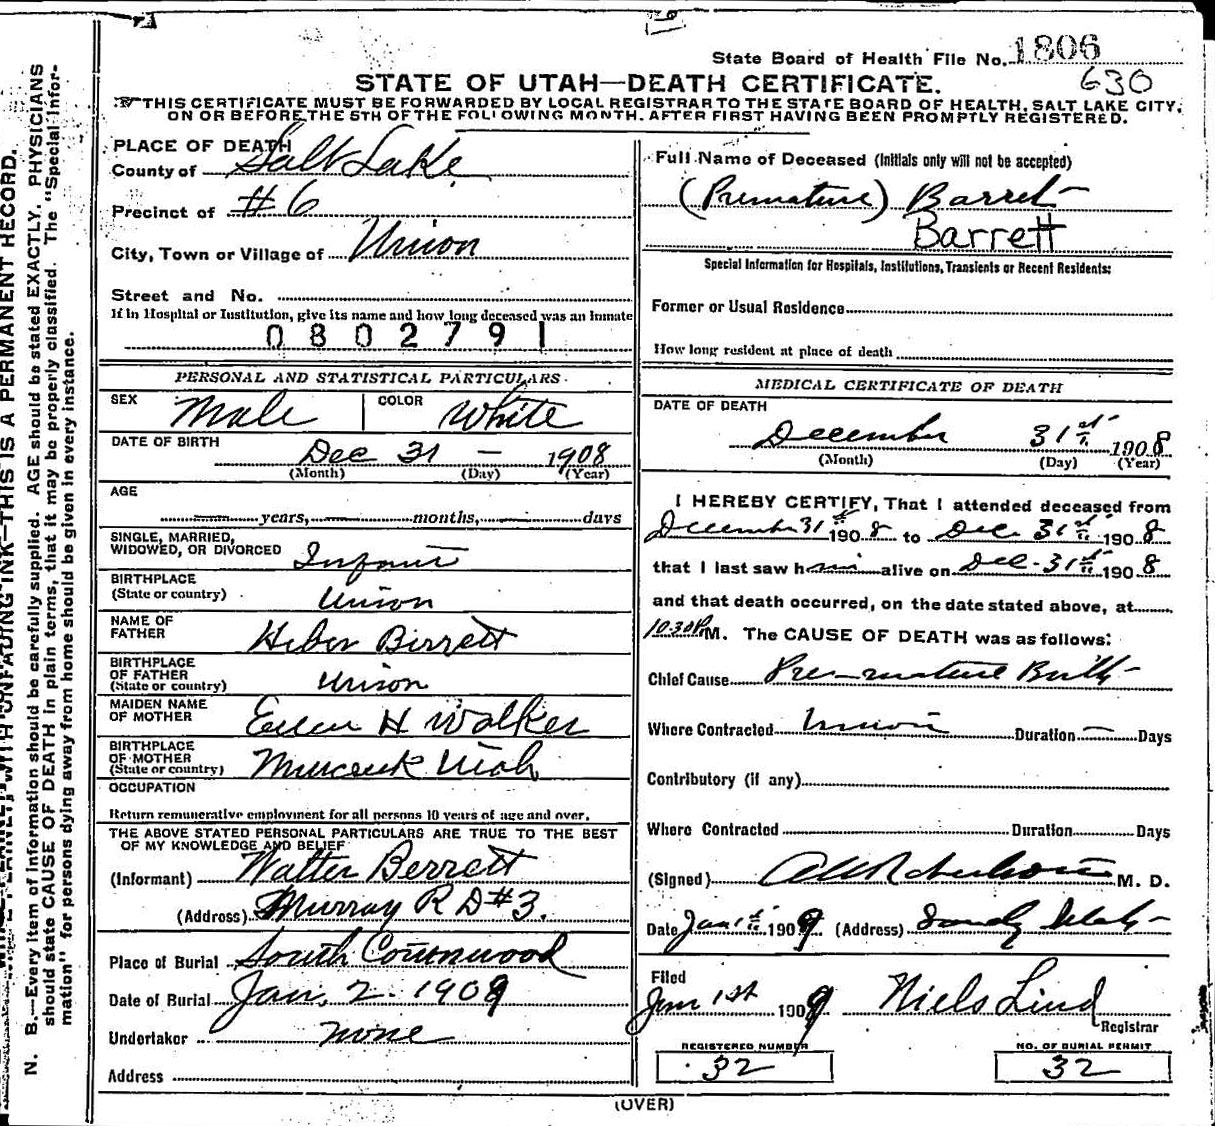 State Board of Health File No. 1806
630
STATE OF UTAH—DEATH CERTIFICATE.
THIS CERTIFICATE MUST BE FORWARDED BY LOCAL REGISTRAR TO THE STATE BOARD OF HEALTH, SALT LAKE CITY,
ON OR BEFORE THE 5TH OF THE FOLLOWING MONTH, AFTER FIRST HAVING BEEN PROMPTLY REGISTERED.
PLACE OF DEATH
County of Salt Lake
Precinct of #6
City, Town or Village of Union
Street and No.
If in Hospital or Institution, give its name and how long deceased was an Inmate
0802791
PERSONAL AND STATISTICAL PARTICULARS.
SEX Male COLOR White
DATE OF BIRTH
Dec 31 — 1908
(Month) (Day) (Year)
AGE
years, months, days
SINGLE, MARRIED,
WIDOWED, OR DIVORCED Infant
BIRTHPLACE
(State or country) Union
NAME OF
FATHER Heber Birrett
BIRTHPLACE
OF FATHER
(State or country) Union
MAIDEN NAME
OF MOTHER H Walker
BIRTHPLACE
OF MOTHER
(State or country) Utah
OCCUPATION
Return remunerative employment for all persons 10 years of age and over.
THE ABOVE STATED PERSONAL PARTICULARS ARE TRUE TO THE BEST
OF MY KNOWLEDGE AND BELIEF
(Informant) Walter Berrett
(Address) Murray R D #3.
Place of Burial South Cottonwood
Date of Burial Jan. 2. 1909
Undertaker none
Address
Full Name of Deceased (Initials only will not be accepted)
(Premature) Barret
Barrett
Special Information for Hospitals, Institutions, Transients or Recent Residents:
Former or Usual Residence
How long resident at place of death
MEDICAL CERTIFICATE OF DEATH
DATE OF DEATH
December 31st 1908
(Month) (Day) (Year)
I HEREBY CERTIFY, That I attended deceased from
December 31st 1908 to Dec. 31st 1908
that I last saw him alive on Dec. 31st 1908
and that death occurred, on the date stated above, at
10:30 P M. The CAUSE OF DEATH was as follows:
Chief Cause Premature Birth
Where Contracted Union Duration — Days
Contributory (if any)
Where Contracted Duration Days
(Signed) M. D.
Date Jan 1st 1909 (Address) Sandy Utah
Filed
Jan 1st 1909 Niels Lind
Registrar
REGISTERED NUMBER
32
NO. OF BURIAL PERMIT
32
(OVER)
N. B.—Every item of information should be carefully supplied. AGE should be stated EXACTLY. PHYSICIANS
should state CAUSE OF DEATH in plain terms, that it may be properly classified. The "Special Infor-
mation" for persons dying away from home should be given in every instance.
WITH UNFADING INK—THIS IS A PERMANENT RECORD.